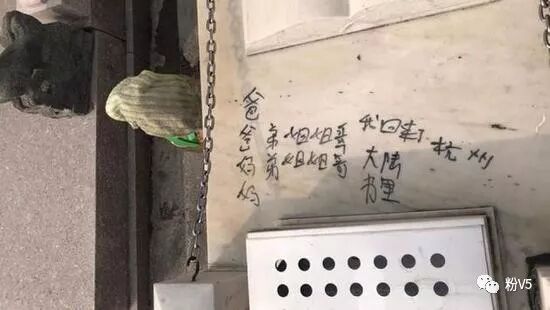 爸
爸 弟姐姐哥 我回来了
妈 弟姐姐哥 大陆 杭州
妈 书里
粉V5